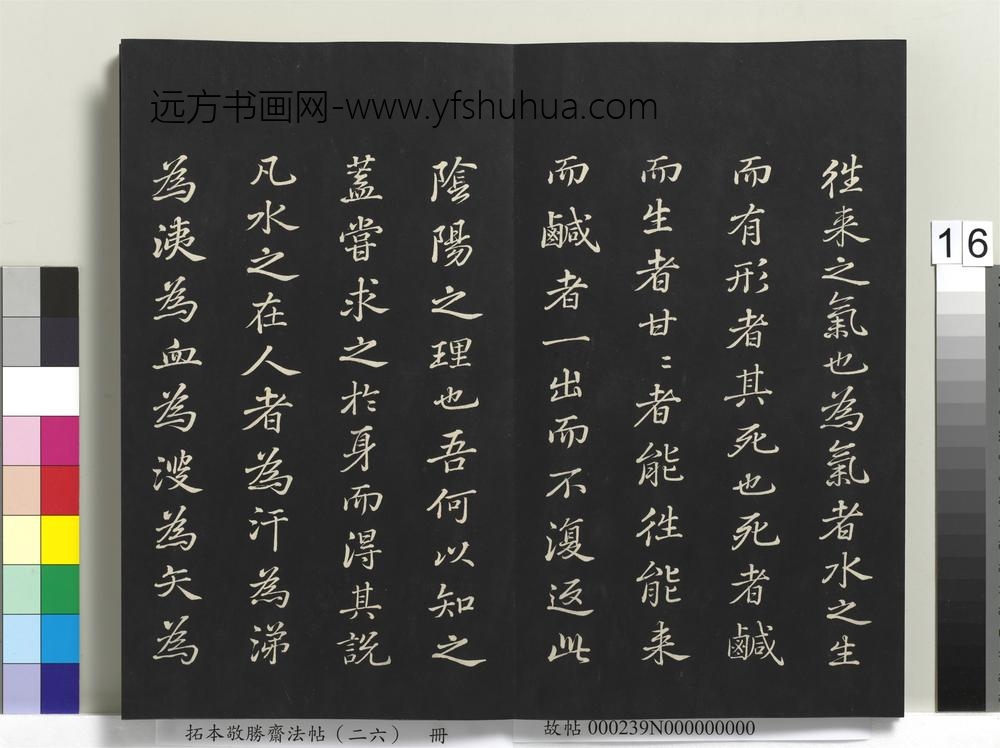 远方书画网-www.yfshuhua.com
徃来之氣也為氣者水之生
而有形者其死也死者鹹
而生者甘〻者能徃能来
而鹹者一出而不澓返此
陰陽之理也吾何以知之
蓋嘗求之於身而淂其説
凡水之在人者為汗為涕
為洟為血為溲為矢為
16
拓本敬勝齋法帖（二六） 冊
故帖 000239N000000000